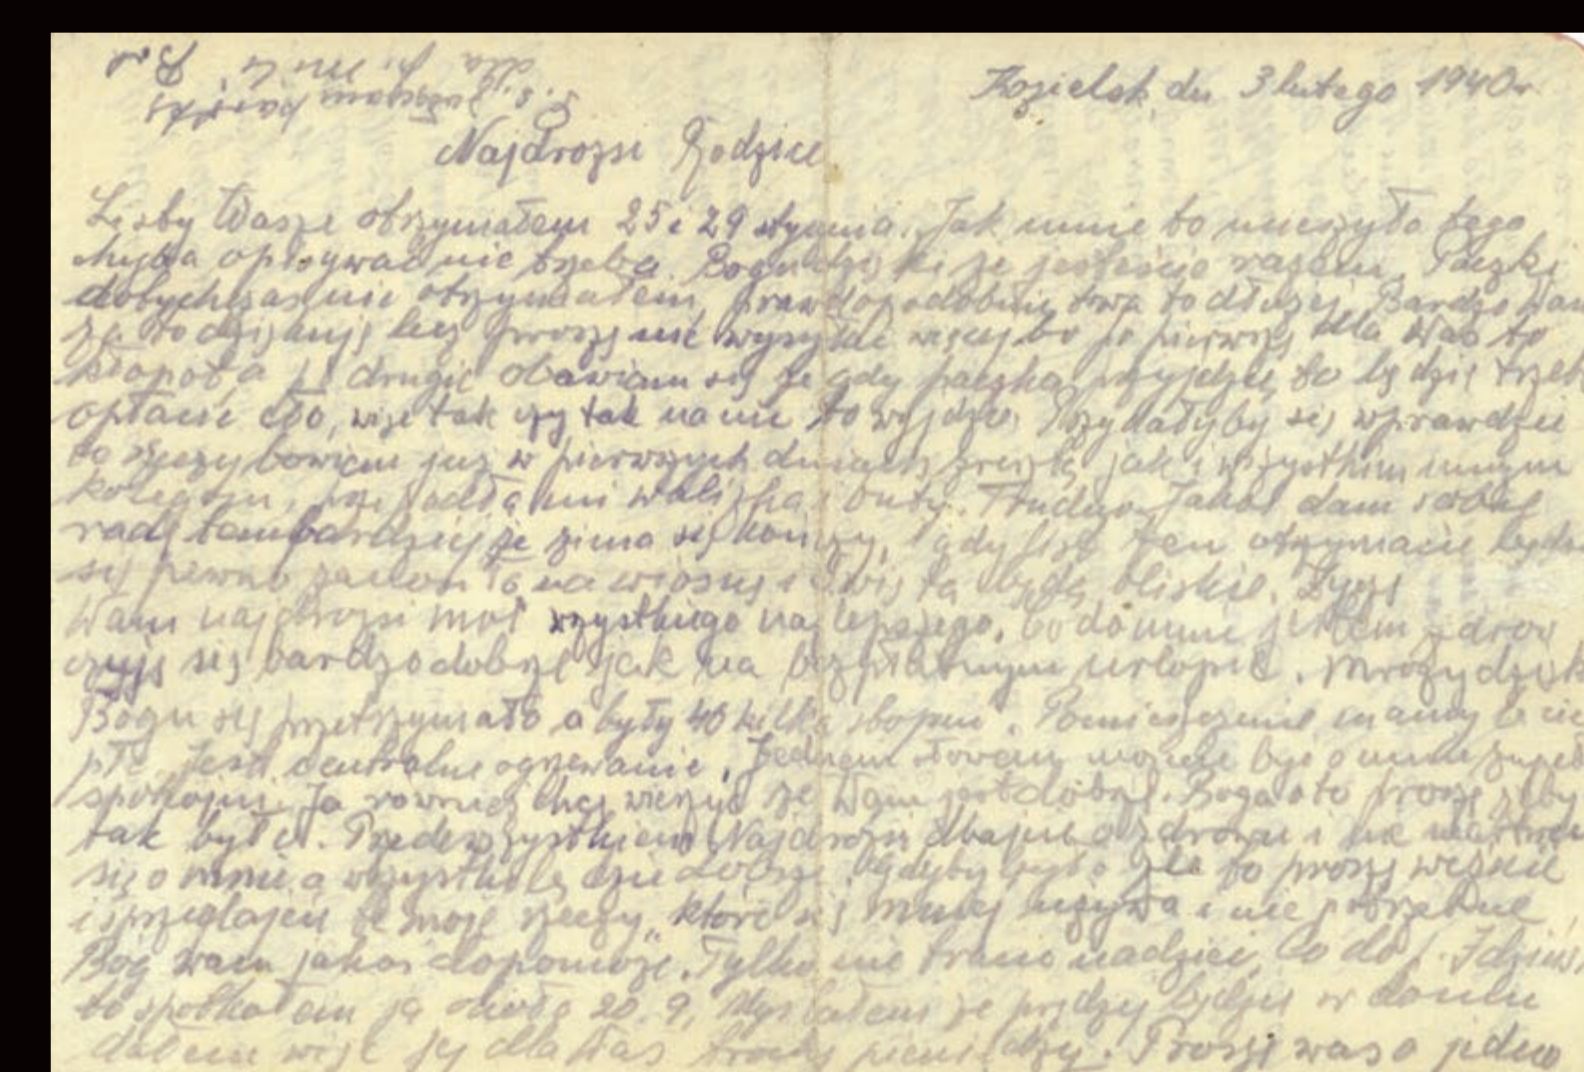 P.S. Załączam
dla
Kozielsk, dn 3 lutego 1940 r
Najdrożsi Rodzice
Listy Wasze otrzymałem 25 i 29 stycznia. Jak mnie to ucieszyło tego
chyba opisywać nie trzeba. Bogu dzięki że jesteście razem. Paczki
dotychczas nie otrzymałem, prawdopodobnie trwa to dłużej. Bardzo Wam
za to dziękuję lecz proszę nie wysyłać więcej bo po pierwsze dla Was to
kłopot a po drugie obawiam się że gdy paczka przyjdzie to będzie trzeb
opłacić cło, więc tak czy tak na nic to wyjdzie. Przydałyby się wprawdzie
te rzeczy bowiem już w pierwszych dniach zresztą jak i wszystkim innym
kolegom, przepadła mi walizka i buty. Trudno. Jakoś dam sobie
radę tembardziej że zima się kończy, i gdy list ten otrzymacie będzie
się pewno zanosiło na wiosnę i Święta będą bliskie. Życzę
Wam najdrożsi moi wszystkiego najlepszego. Co do mnie jestem zdrów
czuję się bardzo dobrze jak na bezpłatnym urlopie. Mrozy dzięk
Bogu się przetrzymało a były 40 kilka stopni. Pomieszczenie mamy b. cie
płe. Jest centralne ogrzewanie. Jednem słowem możecie być o mnie zupeł
spokojni. Ja również chcę wierzyć że Wam jest dobrze. Boga o to proszę żeby
tak było. Przedewszystkiem Najdrożsi dbajcie o zdrowie i nie martwcie
się o mnie a wszystko będzie dobrze. Gdyby było źle to proszę weźcie
i sprzedajcie te moje rzeczy, które się mniej używa i nie potrzebne,
Bóg wam jakoś dopomoże. Tylko nie tracić nadziei. Co do
to spotkałem ją około 20.9, Myślałem że prędzej będzie w domu
dałem więc jej dla Was trochę pieniędzy. Proszę was o jedno